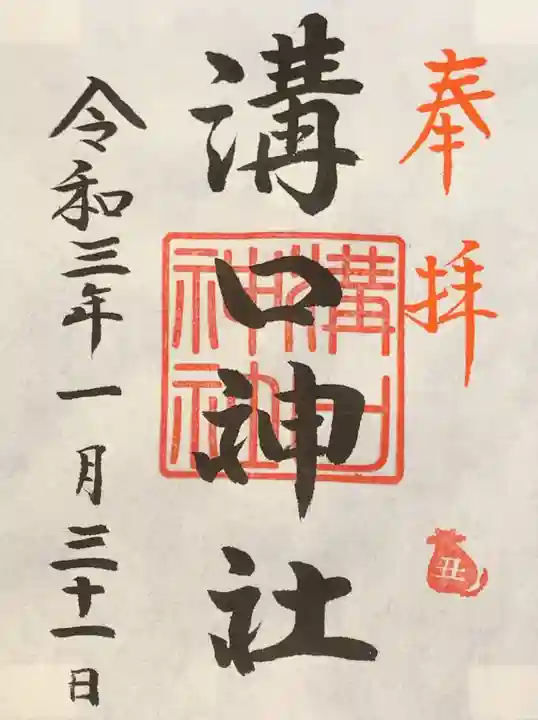 奉拝
溝口神社
溝口神社
令和三年一月三十一日
丑